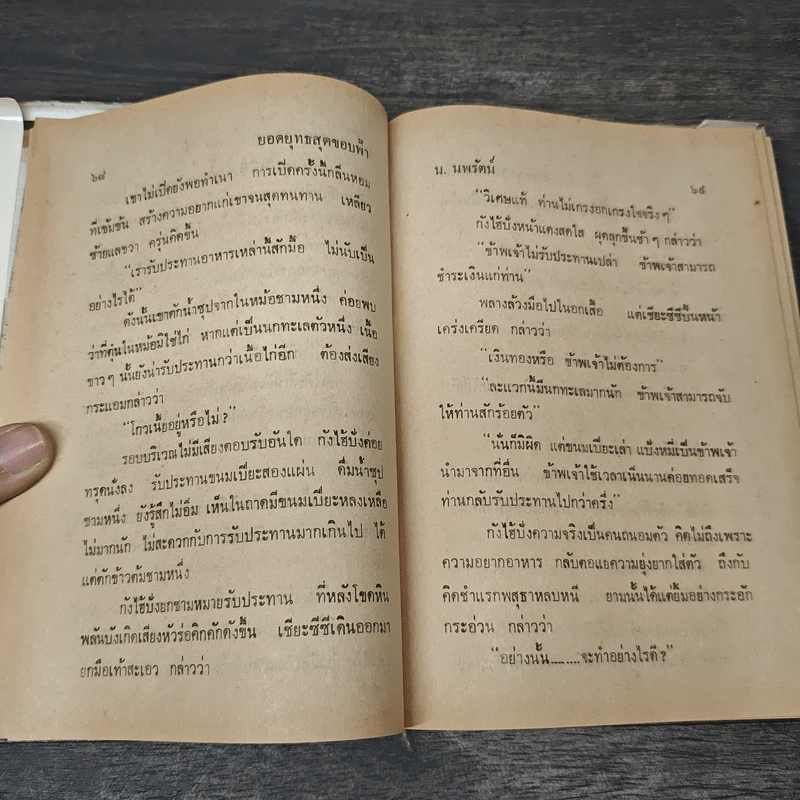 ๖๘
ยอดยุทธสุดขอบฟ้า
เขาไม่เปิดยังพอทำเนา การเปิดครั้งนี้กลิ่นหอม
ที่เข้มข้น สร้างความอยากแก่เขาจนสุดทนทาน เหลียว
ซ้ายแลขวา ครุ่นคิดขึ้น
“เรารับประทานอาหารเหล่านี้สักมื้อ ไม่นับเป็น
อย่างไรได้”
ดังนั้นเขาตักน้ำซุปจากในหม้อชามหนึ่ง ค่อยพบ
ว่าที่ตุ๋นในหม้อมิใช่ไก่ หากแต่เป็นนกทะเลตัวหนึ่ง เนื้อ
ขาวๆ นั้นยังน่ารับประทานกว่าเนื้อไก่อีก ต้องส่งเสียง
กระแอมกล่าวว่า
“โกวเนี้ยอยู่หรือไม่?”
รอบบริเวณไม่มีเสียงตอบรับอันใด กังไฮ้บั่งค่อย
ทรุดนั่งลง รับประทานขนมเปียะสองแผ่น ดื่มน้ำซุป
ชามหนึ่ง ยังรู้สึกไม่อิ่ม เห็นในถาดมีขนมเปียะหลงเหลือ
ไม่มากนัก ไม่สะดวกกับการรับประทานมากเกินไป ได้
แต่ตักข้าวต้มชามหนึ่ง
กังไฮ้บั่งยกชามหมายรับประทาน ที่หลังโขดหิน
พลันบังเกิดเสียงหัวร่อคิกคักดังขึ้น เซียะซีซีเดินออกมา
ยกมือเท้าสะเอว กล่าวว่า
น. นพรัตน์
๖๙
“วิเศษแท้ ท่านไม่เกรงอกเกรงใจจริงๆ”
กังไฮ้บั่งหน้าแดงสดใส ผุดลุกขึ้นช้าๆ กล่าวว่า
“ข้าพเจ้าไม่รับประทานเปล่า ข้าพเจ้าสามารถ
ชำระเงินแก่ท่าน”
พลางล้วงมือไปในอกเสื้อ แต่เซียะซีซีปั้นหน้า
เคร่งเครียด กล่าวว่า
“เงินทองหรือ ข้าพเจ้าไม่ต้องการ”
“ละแวกนี้มีนกทะเลมากนัก ข้าพเจ้าสามารถจับ
ให้ท่านสักร้อยตัว”
“นั่นก็มิผิด แต่ขนมเปียะเล่า แป้งหมี่เป็นข้าพเจ้า
นำมาจากที่อื่น ข้าพเจ้าใช้เวลาเนิ่นนานค่อยทอดเสร็จ
ท่านกลับรับประทานไปกว่าครึ่ง”
กังไฮ้บั่งความจริงเป็นคนถนอมตัว คิดไม่ถึงเพราะ
ความอยากอาหาร กลับตอแยความยุ่งยากใส่ตัว ถึงกับ
คิดชำแรกพสุธาหลบหนี ยามนั้นได้แต่ยิ้มอย่างกระอัก
กระอ่วน กล่าวว่า
“อย่างนั้น.........จะทำอย่างไรดี?”